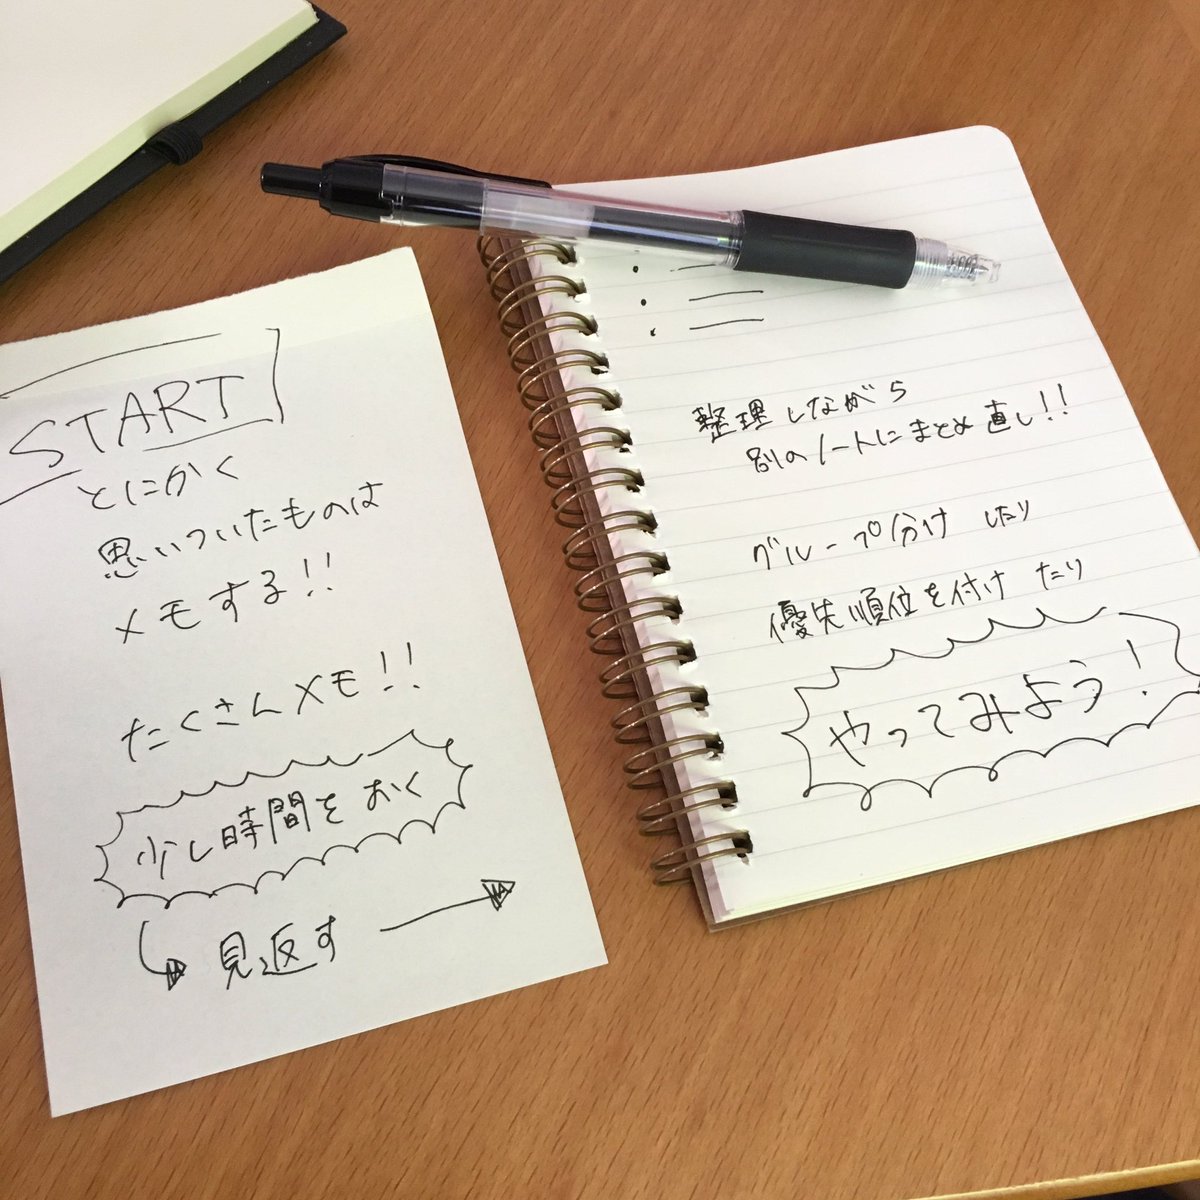 START
とにかく
思いついたものは
メモする!!
たくさんメモ!!
少し時間をおく
見返す
整理しながら
別のノートにまとめ直し!!
グループ分けしたり
優先順位を付けたり
やってみよう!